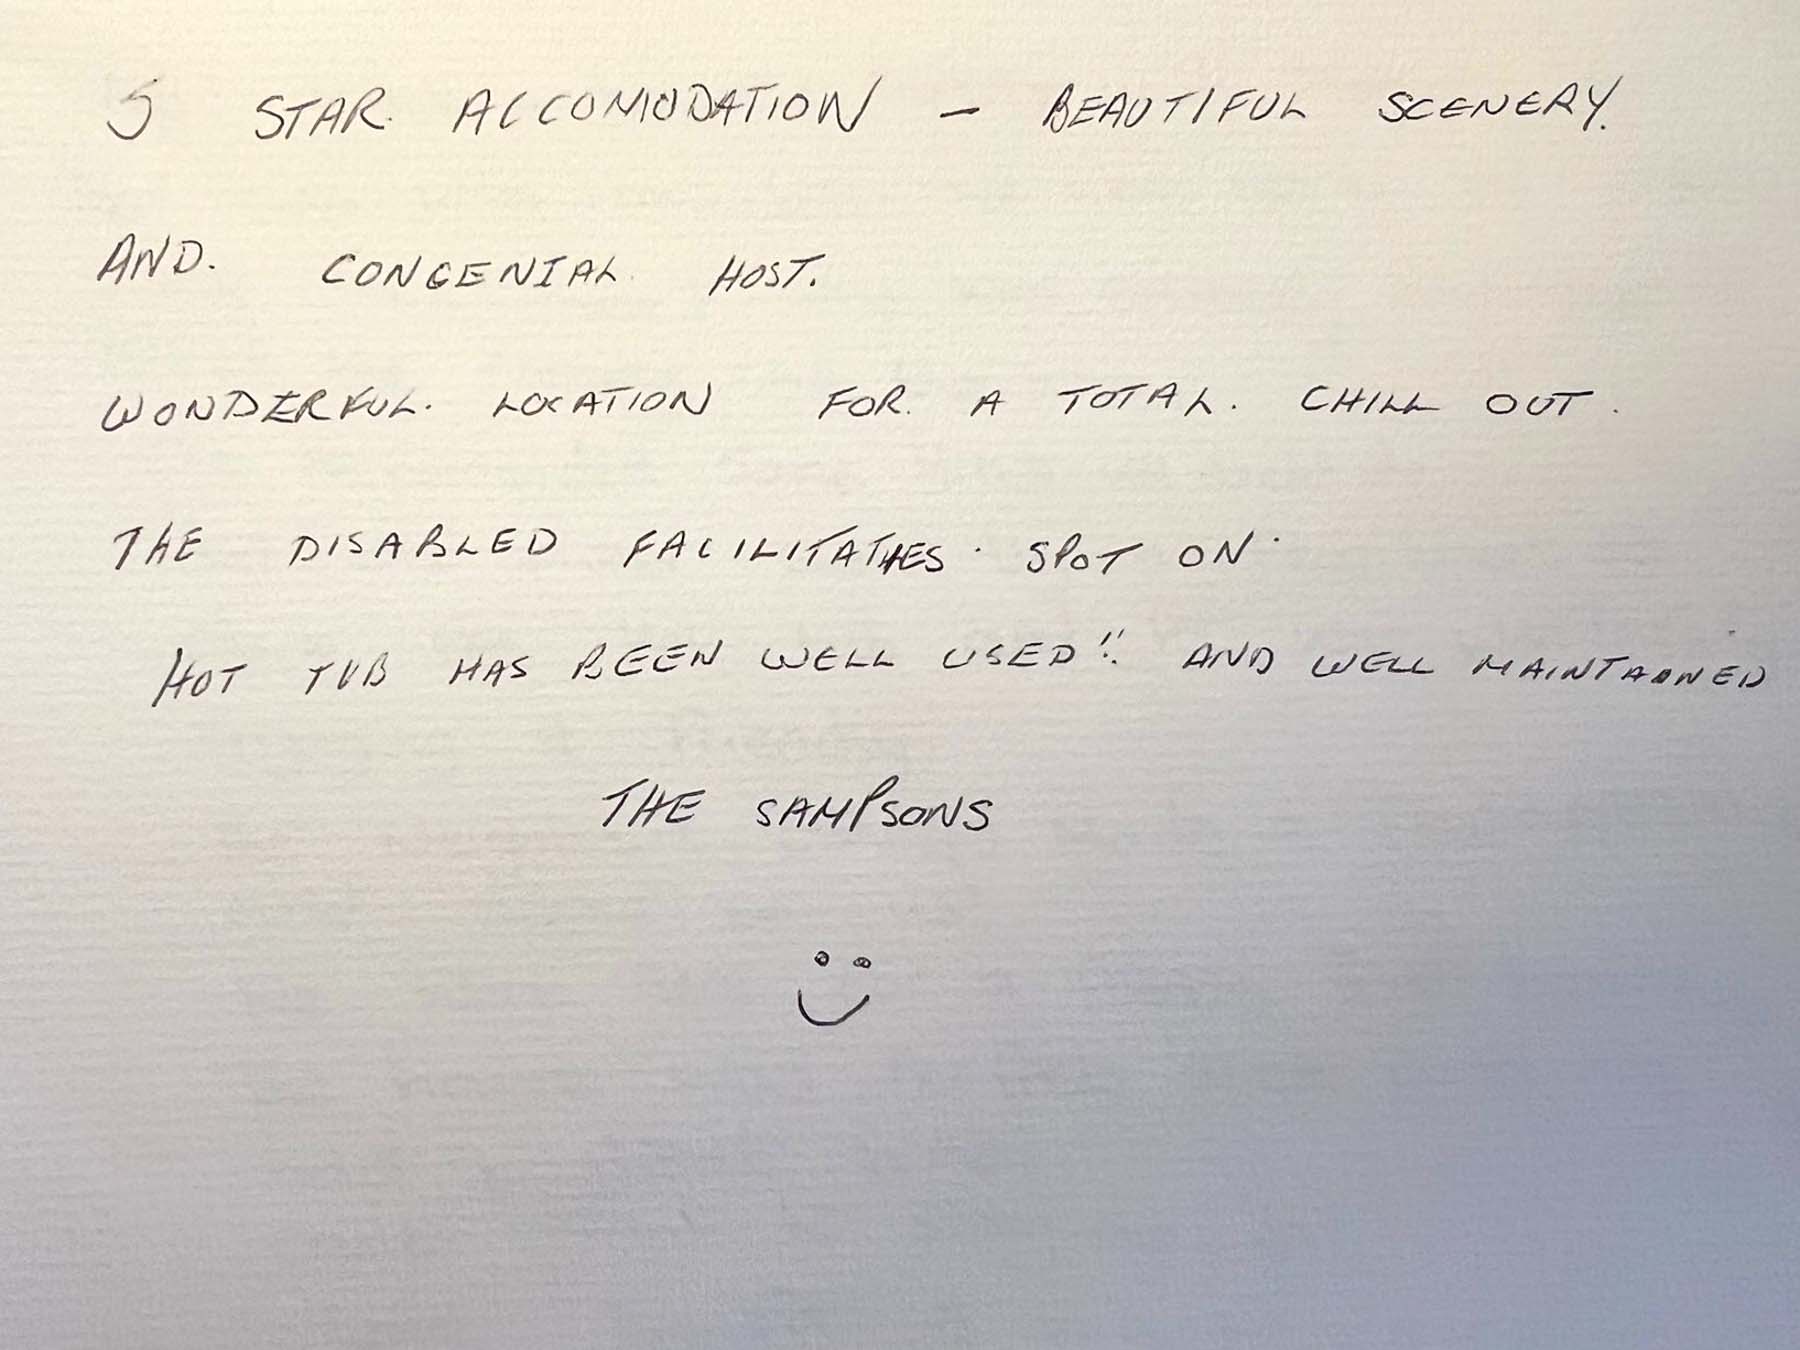 5 STAR ACCOMODATION - BEAUTIFUL SCENERY.
AND. CONGENIAL HOST.
WONDERFUL. LOCATION FOR A TOTAL. CHILL OUT.
THE DISABLED FACILITATIES. SPOT ON.
HOT TUB HAS BEEN WELL USED!! AND WELL MAINTAINED
THE SAMPSONS